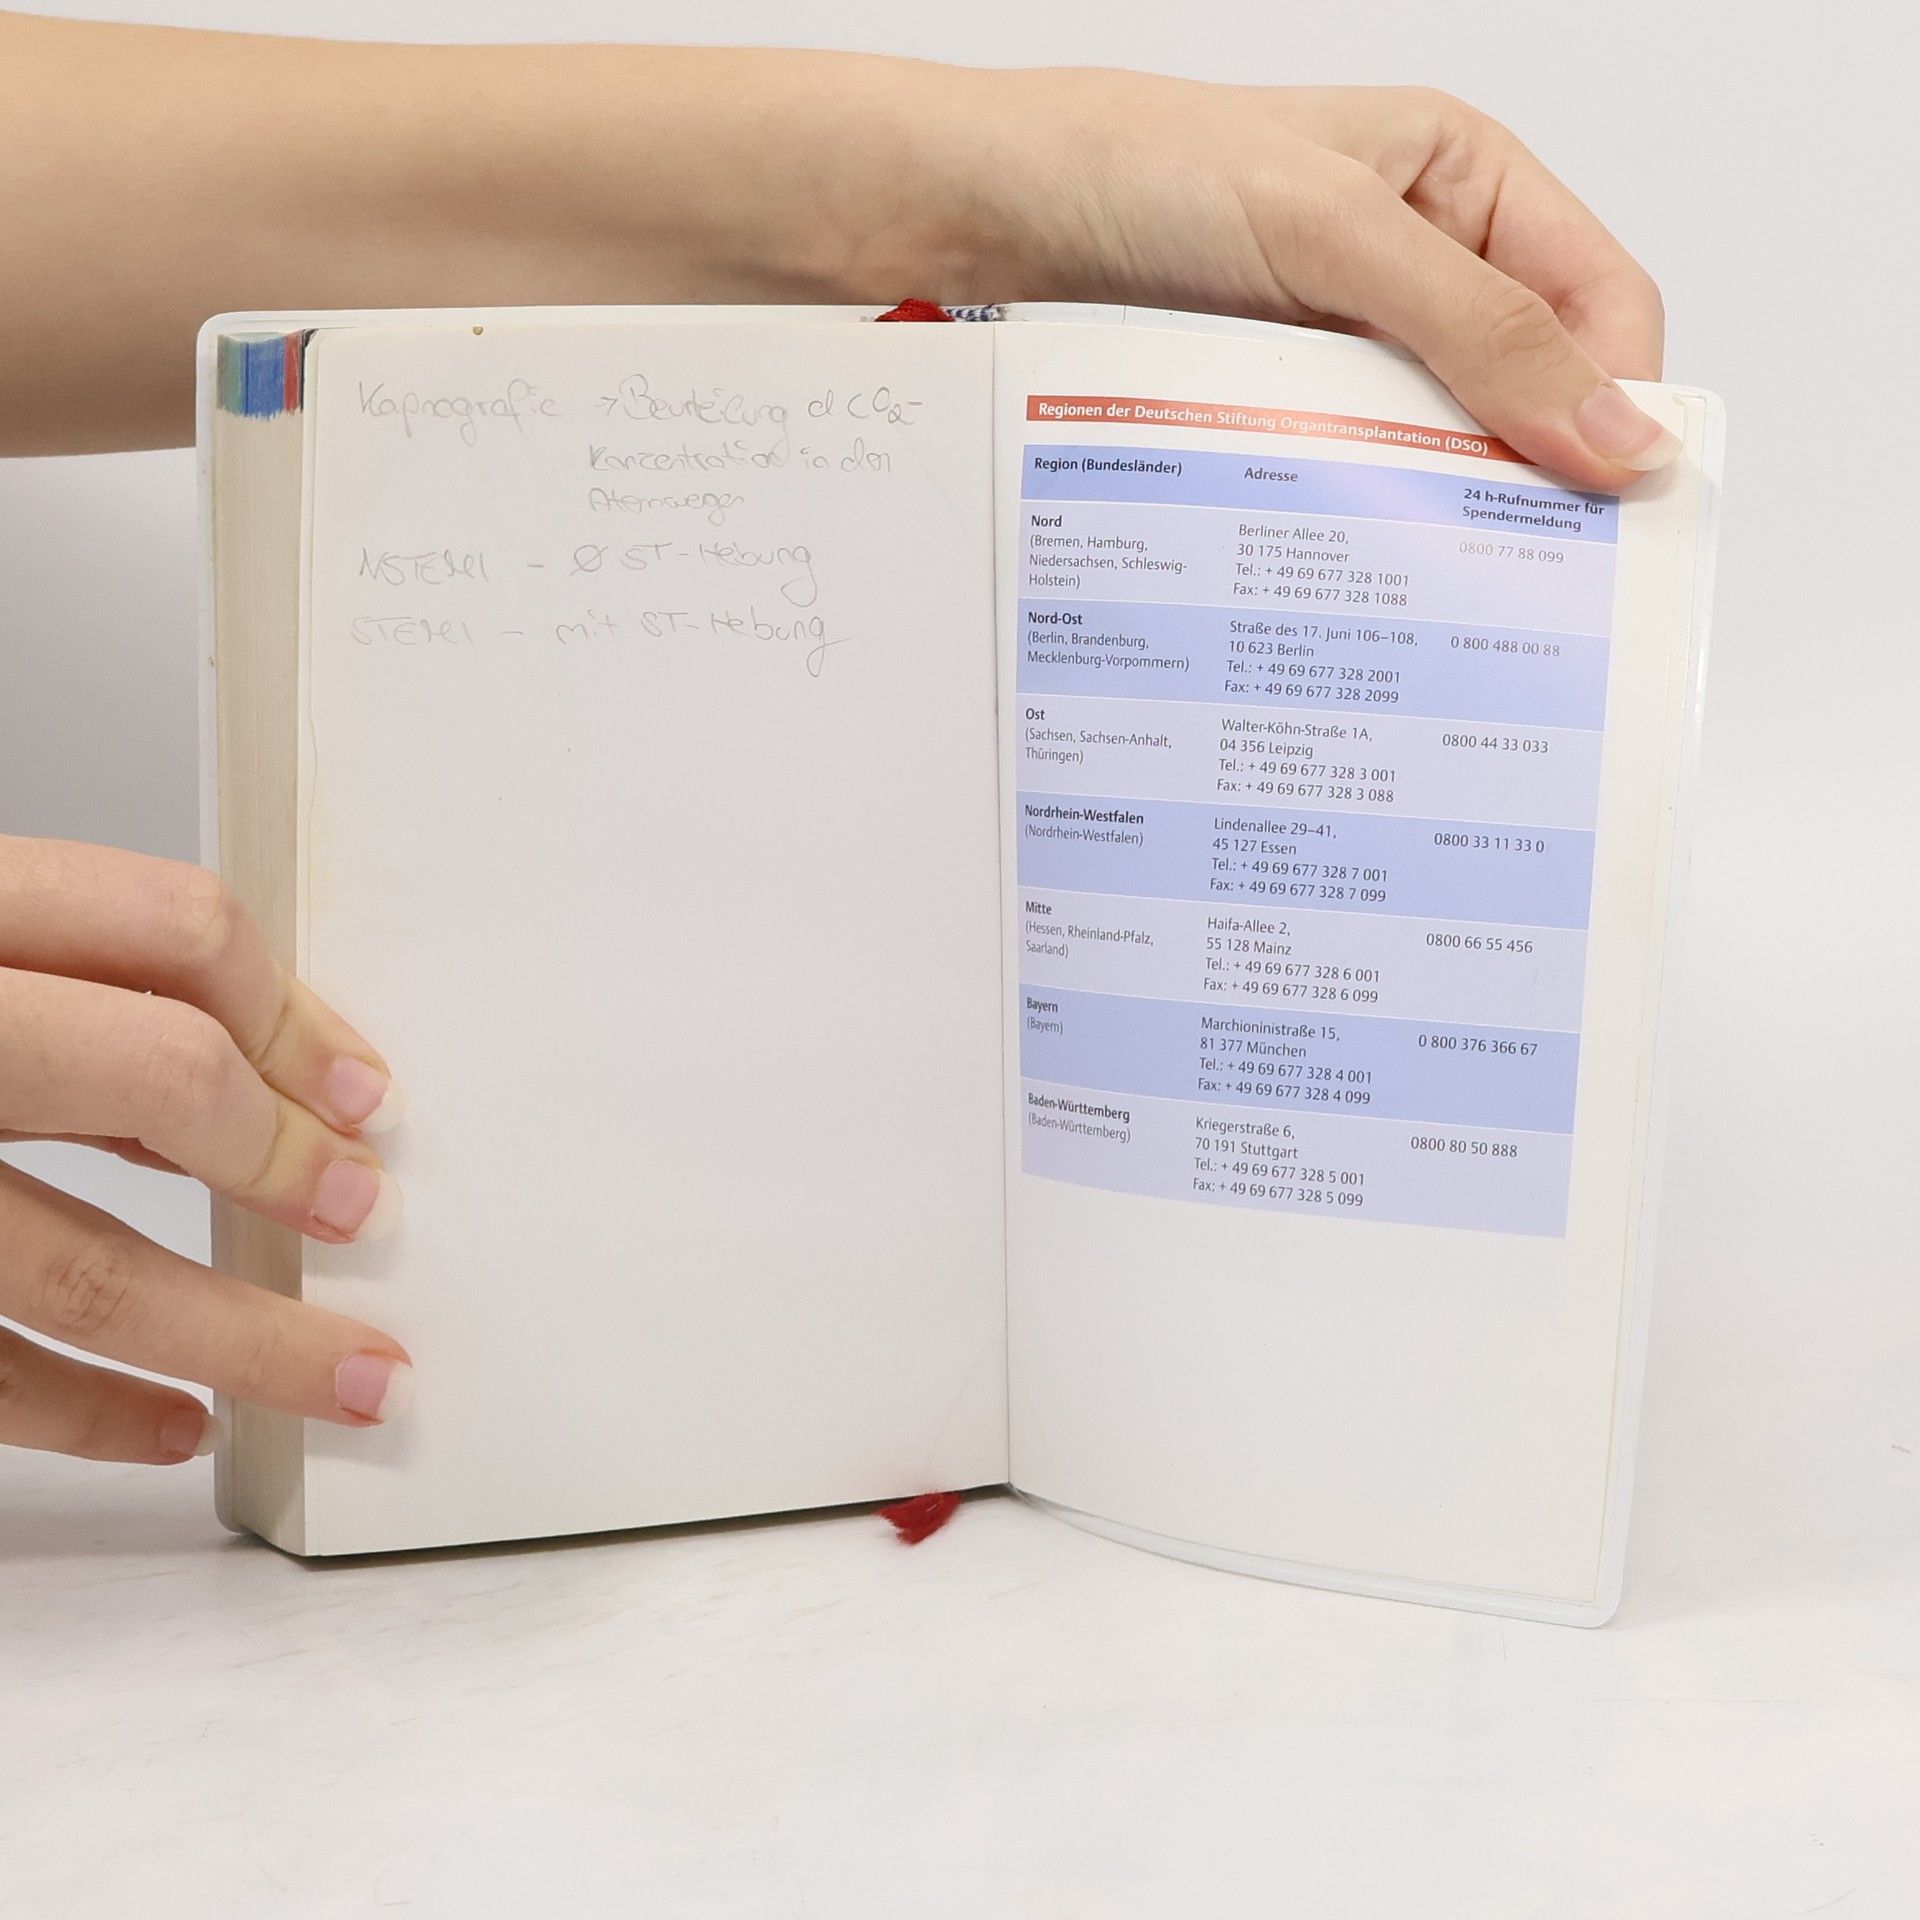 Kapnografie → Beurteilung d CO2-
Konzentration in den
Atemwegen
NSTEMI - Ø ST-Hebung
STEMI - mit ST-Hebung
Regionen der Deutschen Stiftung Organtransplantation (DSO)
Region (Bundesländer) Adresse 24 h-Rufnummer für
Spendermeldung
Nord
(Bremen, Hamburg,
Niedersachsen, Schleswig-
Holstein)
Berliner Allee 20,
30 175 Hannover
Tel.: + 49 69 677 328 1001
Fax: + 49 69 677 328 1088
0800 77 88 099
Nord-Ost
(Berlin, Brandenburg,
Mecklenburg-Vorpommern)
Straße des 17. Juni 106–108,
10 623 Berlin
Tel.: + 49 69 677 328 2001
Fax: + 49 69 677 328 2099
0 800 488 00 88
Ost
(Sachsen, Sachsen-Anhalt,
Thüringen)
Walter-Köhn-Straße 1A,
04 356 Leipzig
Tel.: + 49 69 677 328 3 001
Fax: + 49 69 677 328 3 088
0800 44 33 033
Nordrhein-Westfalen
(Nordrhein-Westfalen)
Lindenallee 29–41,
45 127 Essen
Tel.: + 49 69 677 328 7 001
Fax: + 49 69 677 328 7 099
0800 33 11 33 0
Mitte
(Hessen, Rheinland-Pfalz,
Saarland)
Haifa-Allee 2,
55 128 Mainz
Tel.: + 49 69 677 328 6 001
Fax: + 49 69 677 328 6 099
0800 66 55 456
Bayern
(Bayern)
Marchioninistraße 15,
81 377 München
Tel.: + 49 69 677 328 4 001
Fax: + 49 69 677 328 4 099
0 800 376 366 67
Baden-Württemberg
(Baden-Württemberg)
Kriegerstraße 6,
70 191 Stuttgart
Tel.: + 49 69 677 328 5 001
Fax: + 49 69 677 328 5 099
0800 80 50 888